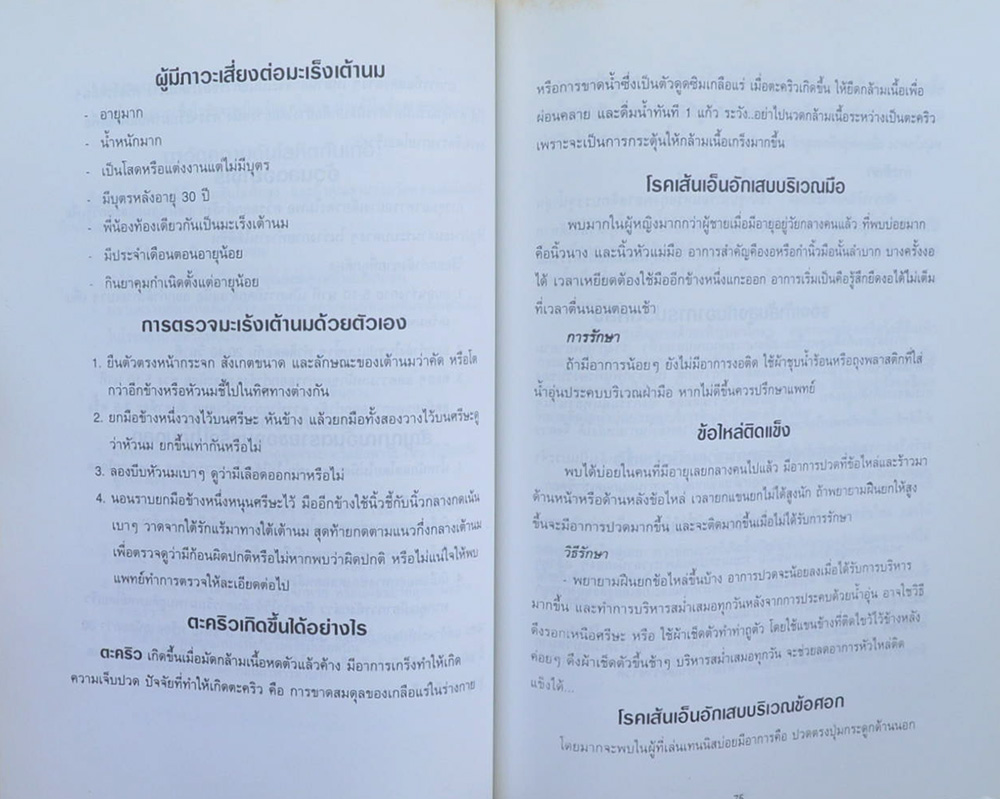 ผู้มีภาวะเสี่ยงต่อมะเร็งเต้านม
- อายุมาก
- น้ำหนักมาก
- เป็นโสดหรือแต่งงานแต่ไม่มีบุตร
- มีบุตรหลังอายุ 30 ปี
- พี่น้องท้องเดียวกันเป็นมะเร็งเต้านม
- มีประจำเดือนตอนอายุน้อย
- กินยาคุมกำเนิดตั้งแต่อายุน้อย
การตรวจมะเร้งเต้านมด้วยตัวเอง
1. ยืนตัวตรงหน้ากระจก สังเกตขนาด และลักษณะของเต้านมว่าคัด หรือโต
กว่าอีกข้างหรือหัวนมชี้ไปในทิศทางต่างกัน
2. ยกมือข้างหนึ่งวางไว้บนศรีษะ หันข้าง แล้วยกมือทั้งสองวางไว้บนศรีษะดู
ว่าหัวนม ยกขึ้นเท่ากันหรือไม่
3. ลองบีบหัวนมเบาๆ ดูว่ามีเลือดออกมาหรือไม่
4. นอนราบยกมือข้างหนึ่งหนุนศรีษะไว้ มืออีกข้างใช้นิ้วชี้กับนิ้วกลางกดเน้น
เบาๆ วาดจากใต้รักแร้มาทางใต้เต้านม สุดท้ายกดตามแนวกึ่งกลางเต้านม
เพื่อตรวจดูว่ามีก้อนผิดปกติหรือไม่หากพบว่าผิดปกติ หรือไม่แน่ใจให้พบ
แพทย์ทำการตรวจให้ละเอียดต่อไป
ตะคริวเกิดขึ้นได้อย่างไร
ตะคริว เกิดขึ้นเมื่อมัดกล้ามเนื้อหดตัวแล้วค้าง มีอาการเกร็งทำให้เกิด
ความเจ็บปวด ปัจจัยที่ทำให้เกิดตะคริว คือ การขาดสมดุลของเกลือแร่ในร่างกาย
หรือการขาดน้ำซึ่งเป็นตัวดูดซึมเกลือแร่ เมื่อตะคริวเกิดขึ้น ให้ยืดกล้ามเนื้อเพื่อ
ผ่อนคลาย และดื่มน้ำทันที 1 แก้ว ระวัง..อย่าไปนวดกล้ามเนื้อระหว่างเป็นตะคริว
เพราะจะเป็นการกระตุ้นให้กล้ามเนื้อเกร็งมากขึ้น
โรคเส้นเอ็นอักเสบบริเวณมือ
พบมากในผู้หญิงมากกว่าผู้ชายเมื่อมีอายุอยู่วัยกลางคนแล้ว ที่พบบ่อยมาก
คือนิ้วนาง และนิ้วหัวแม่มือ อาการสำคัญคืองอหรือกำนิ้วมือนั้นลำบาก บางครั้งงอ
ได้ เวลาเหยียดต้องใช้มืออีกข้างหนึ่งแกะออก อาการเริ่มเป็นคือรู้สึกยืดงอได้ไม่เต็ม
ที่เวลาตื่นนอนตอนเช้า
การรักษา
ถ้ามีอาการน้อยๆ ยังไม่มีอาการงอติด ใช้ผ้าชุบน้ำร้อนหรือถุงพลาสติกที่ใส่
น้ำอุ่นประคบบริเวณฝ่ามือ หากไม่ดีขึ้นควรปรึกษาแพทย์
ข้อไหล่ติดแข็ง
พบได้บ่อยในคนที่มีอายุเลยกลางคนไปแล้ว มีอาการปวดที่ข้อไหล่และร้าวมา
ด้านหน้าหรือด้านหลังข้อไหล่ เวลายกแขนยกไม่ได้สูงนัก ถ้าพยายามฝืนยกให้สูง
ขึ้นจะมีอาการปวดมากขึ้น และจะติดมากขึ้นเมื่อไม่ได้รับการรักษา
วิธีรักษา
- พยายามฝืนยกข้อไหล่ขึ้นบ้าง อาการปวดจะน้อยลงเมื่อได้รับการบริหาร
มากขึ้น และทำการบริหารสม่ำเสมอทุกวันหลังจากการประคบด้วยน้ำอุ่น อาจใช้วิธี
ดึงรอกเหนือศรีษะ หรือ ใช้ผ้าเช็ดตัวทำท่าถูตัว โดยใช้แขนข้างที่ติดไขว้ไว้ข้างหลัง
ค่อยๆ ดึงผ้าเช็ดตัวขึ้นช้าๆ บริหารสม่ำเสมอทุกวัน จะช่วยลดอาการหัวไหล่ติด
แข็งได้...
โรคเส้นเอ็นอักเสบบริเวณข้อศอก
โดยมากจะพบในผู้ที่เล่นเทนนิสบ่อยมีอาการคือ ปวดตรงปุ่มกระดูกด้านนอก